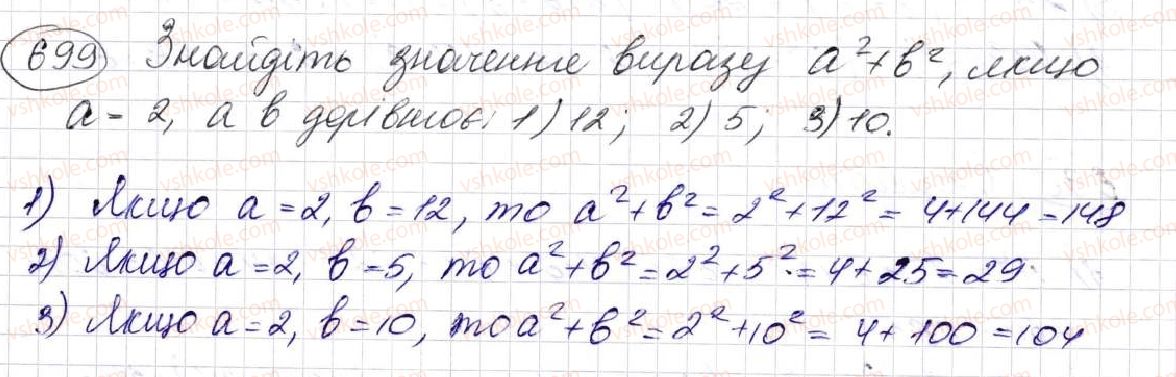 699 Знайдіть значення виразу a²+b², якщо
a = 2, а b дорівнює: 1) 12; 2) 5; 3) 10.
1) Якщо a = 2, b = 12, то a²+b² = 2²+12² = 4+144 = 148
2) Якщо a = 2, b = 5, то a²+b² = 2²+5² = 4+25 = 29
3) Якщо a = 2, b = 10, то a²+b² = 2²+10² = 4+100 = 104
vshkole.com